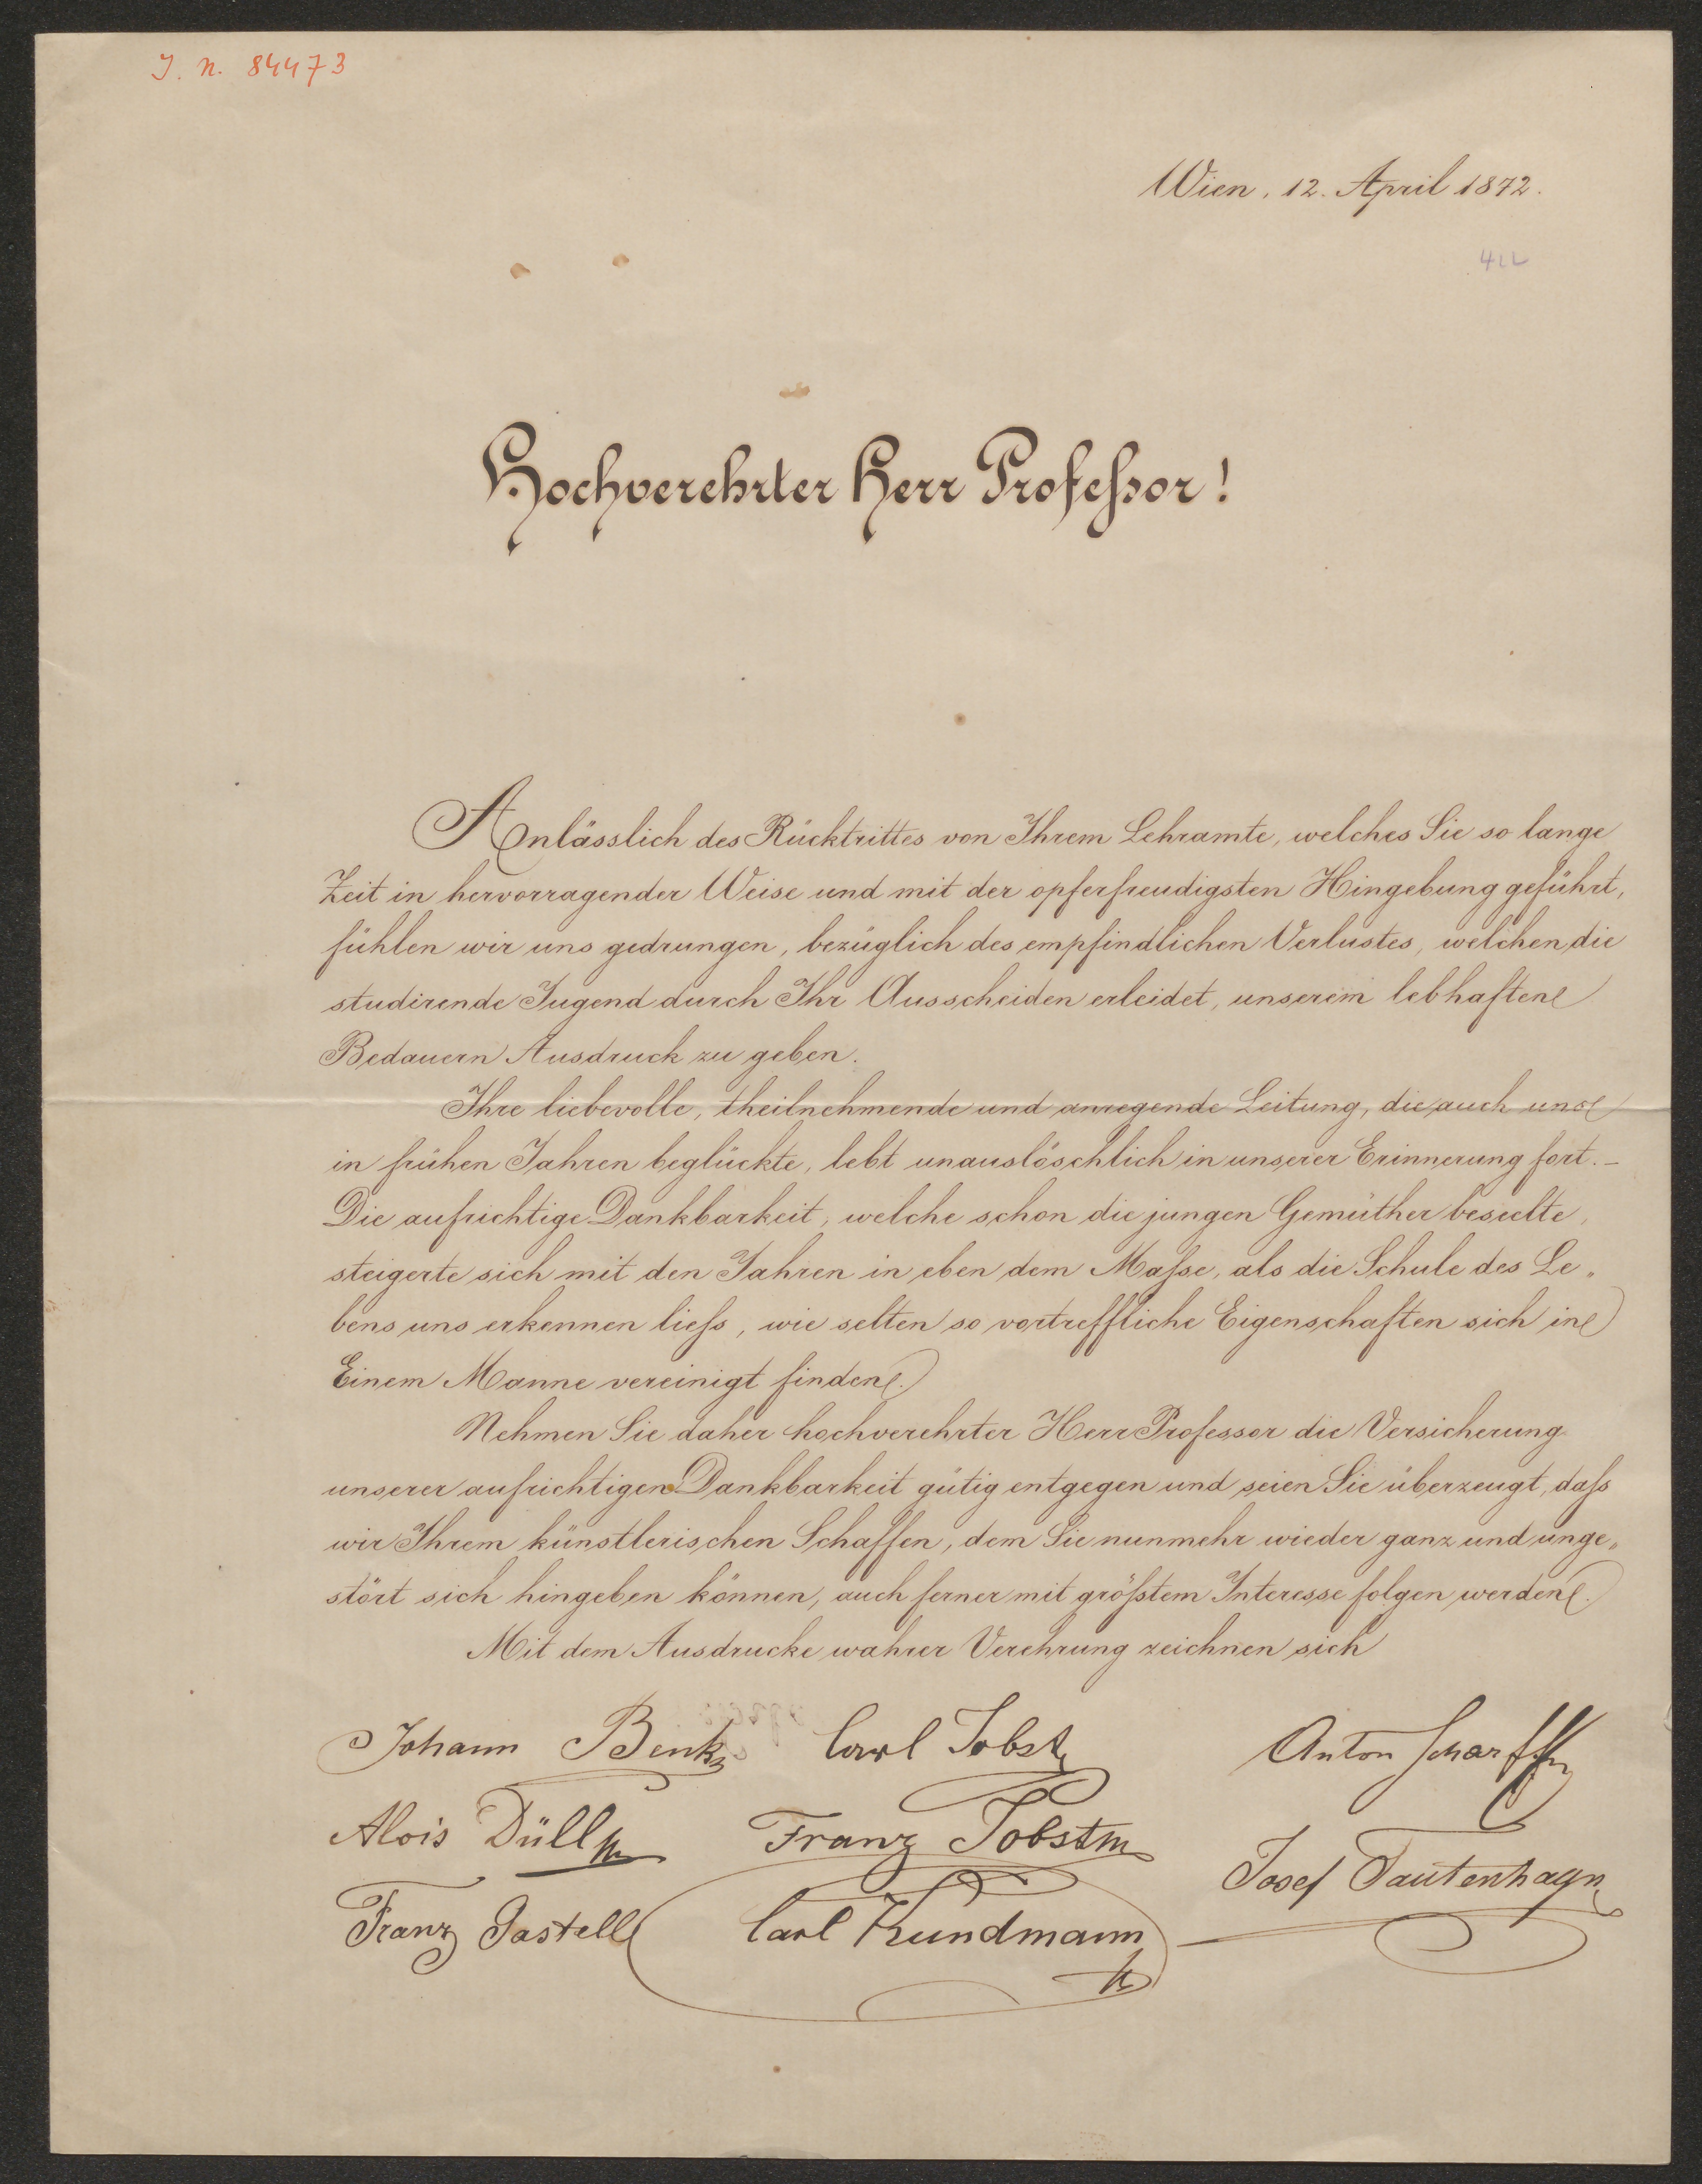 J. N. 84473
Wien, 12. April 1872.
Hochverehrter Herr Professor!
Anlässlich des Rücktrittes von Ihrem Lehramte, welches Sie so lange
Zeit in hervorragender Weise und mit der opferfreudigsten Hingebung geführt,
fühlen wir uns gedrungen, bezüglich des empfindlichen Verlustes, welchen die
studirende Jugend durch Ihr Ausscheiden erleidet, unserem lebhaften
Bedauern Ausdruck zu geben.
Ihre liebevolle, theilnehmende und anregende Leitung, die auch uns
in frühen Jahren beglückte, lebt unauslöschlich in unserer Erinnerung fort. –
Die aufrichtige Dankbarkeit, welche schon die jungen Gemüther beseelte,
steigerte sich mit den Jahren in eben dem Maße, als die Schule des Le„
bens uns erkennen ließ, wie selten so vortreffliche Eigenschaften sich in
Einem Manne vereinigt finden.
Nehmen Sie daher hochverehrter Herr Professor die Versicherung
unserer aufrichtigen Dankbarkeit gütig entgegen und seien Sie überzeugt, daß
wir Ihrem künstlerischen Schaffen, dem Sie nunmehr wieder ganz und unge„
stört sich hingeben können, auch ferner mit größtem Interesse folgen werden.
Mit dem Ausdrucke wahrer Verehrung zeichnen sich
Johann Benk Carl Jobst Anton Scharff
Alois Düll Franz Jobst Josef Tautenhayn
Franz Gastell Carl Kundmann